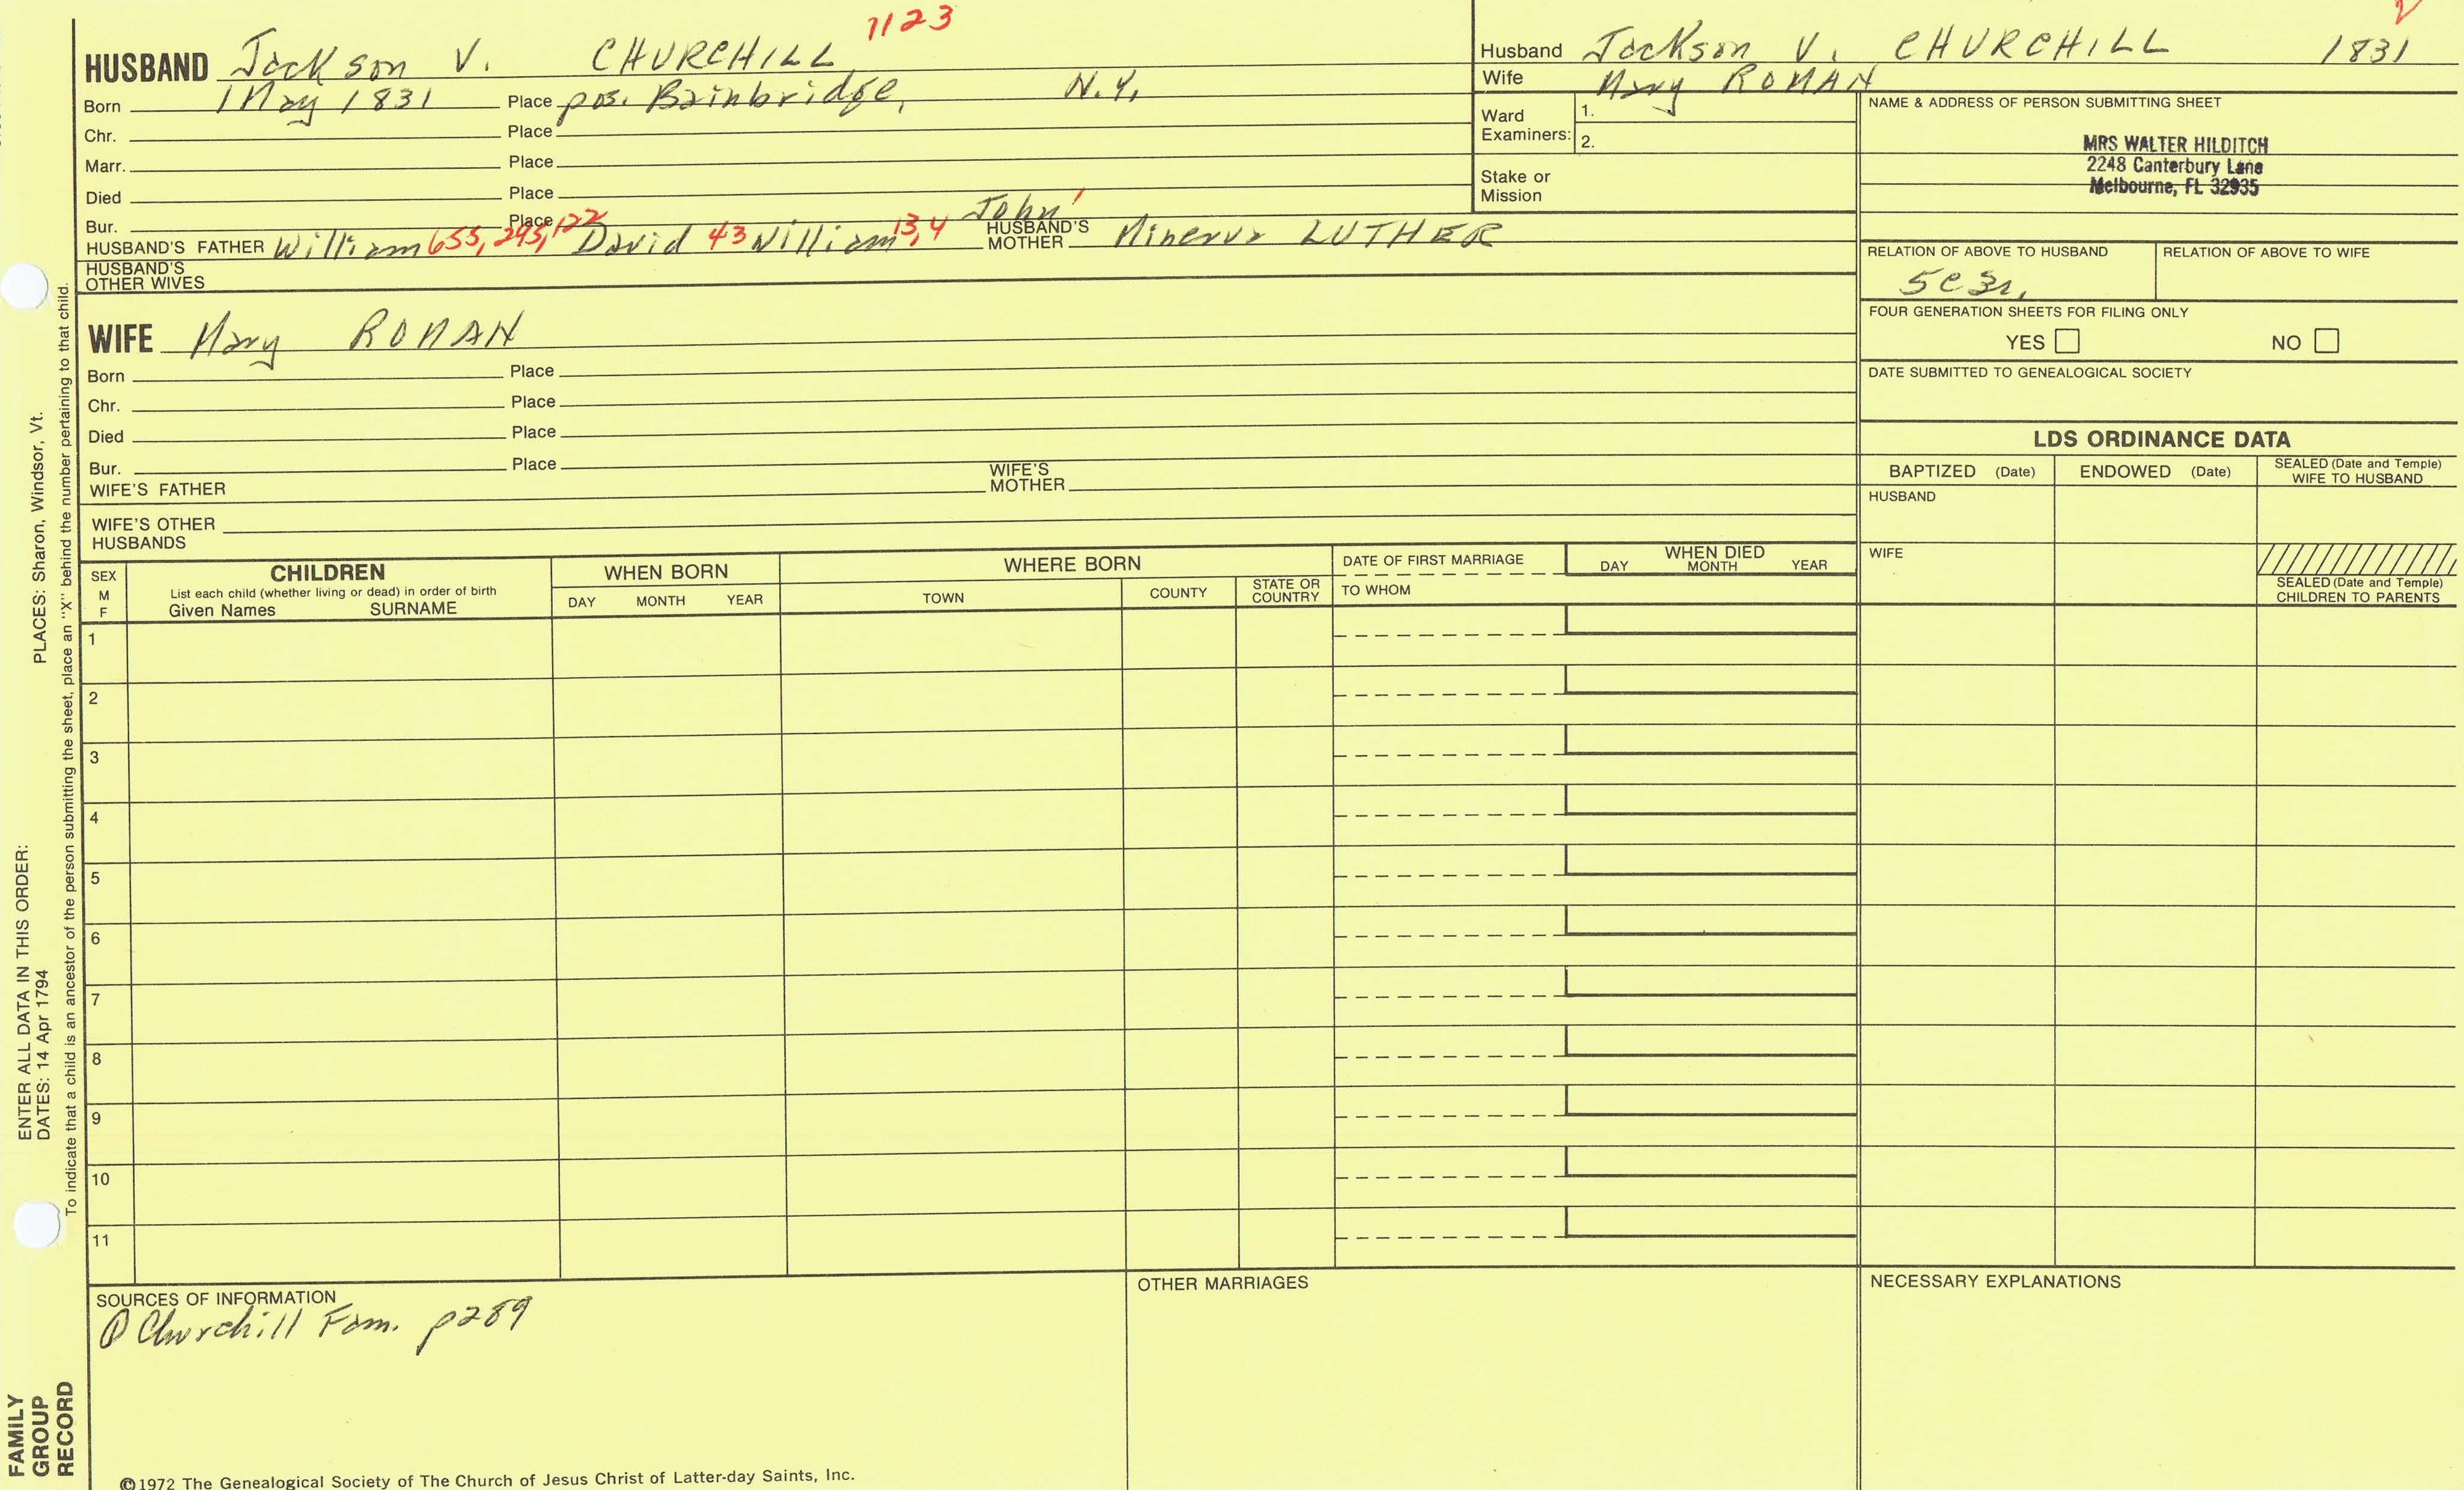 1123
HUSBAND Jackson V. CHURCHILL
Born 1 May 1831 Place pos. Bainbridge, N.Y.
Chr. Place
Marr. Place
Died Place
Bur. Place
HUSBAND'S FATHER William 655, 295, 122 David 43 William 13,4 John 1 HUSBAND'S MOTHER Minerva LUTHER
HUSBAND'S OTHER WIVES
WIFE Mary ROMAN
Born Place
Chr. Place
Died Place
Bur. Place
WIFE'S FATHER WIFE'S MOTHER
WIFE'S OTHER HUSBANDS
Husband Jackson V. CHURCHILL 1831
Wife Mary ROMAN
Ward Examiners: 1.
2.
Stake or Mission
NAME & ADDRESS OF PERSON SUBMITTING SHEET
MRS WALTER HILDITCH
2248 Canterbury Lane
Melbourne, FL 32935
RELATION OF ABOVE TO HUSBAND RELATION OF ABOVE TO WIFE
5c3r.
FOUR GENERATION SHEETS FOR FILING ONLY
YES NO
DATE SUBMITTED TO GENEALOGICAL SOCIETY
LDS ORDINANCE DATA
BAPTIZED (Date) ENDOWED (Date) SEALED (Date and Temple) WIFE TO HUSBAND
HUSBAND
WIFE
SEALED (Date and Temple) CHILDREN TO PARENTS
SEX M F
CHILDREN
List each child (whether living or dead) in order of birth
Given Names SURNAME
WHEN BORN
DAY MONTH YEAR
WHERE BORN
TOWN COUNTY STATE OR COUNTRY
DATE OF FIRST MARRIAGE
TO WHOM
WHEN DIED
DAY MONTH YEAR
1
2
3
4
5
6
7
8
9
10
11
SOURCES OF INFORMATION
① Churchill Fam. p289
OTHER MARRIAGES
NECESSARY EXPLANATIONS
©1972 The Genealogical Society of The Church of Jesus Christ of Latter-day Saints, Inc.
FAMILY
GROUP
RECORD
ENTER ALL DATA IN THIS ORDER:
DATES: 14 Apr 1794 PLACES: Sharon, Windsor, Vt.
To indicate that a child is an ancestor of the person submitting the sheet, place an "X" behind the number pertaining to that child.